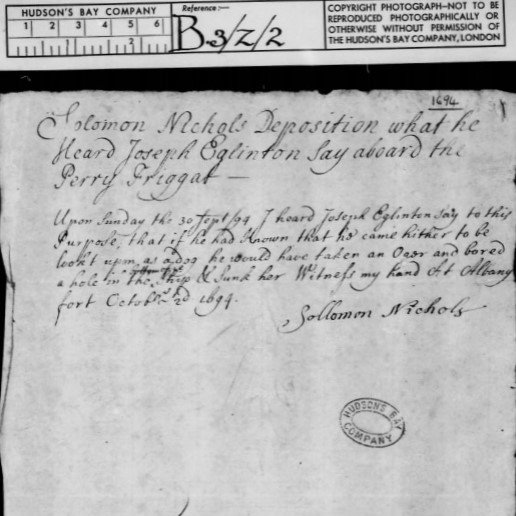 HUDSON'S BAY COMPANY
1 2 3 4 5 6
1 2
Reference:—
B.3/Z/2
COPYRIGHT PHOTOGRAPH—NOT TO BE
REPRODUCED PHOTOGRAPHICALLY OR
OTHERWISE WITHOUT PERMISSION OF
THE HUDSON'S BAY COMPANY, LONDON
1694
Solomon Nichols Deposition what he
Heard Joseph Eglinton Say aboard the
Perry Friggat —
Upon Sunday the 30 Sept/94 I heard Joseph Eglinton Say to this
Purpose, that if he had known that he came hither to be
look't upon as a dog he would have taken an and bored
a hole in the Ship & Sunk her Witness my hand At Albany
fort Octobr 2d 1694.
Sollomon Nichols
HUDSON'S BAY
COMPANY